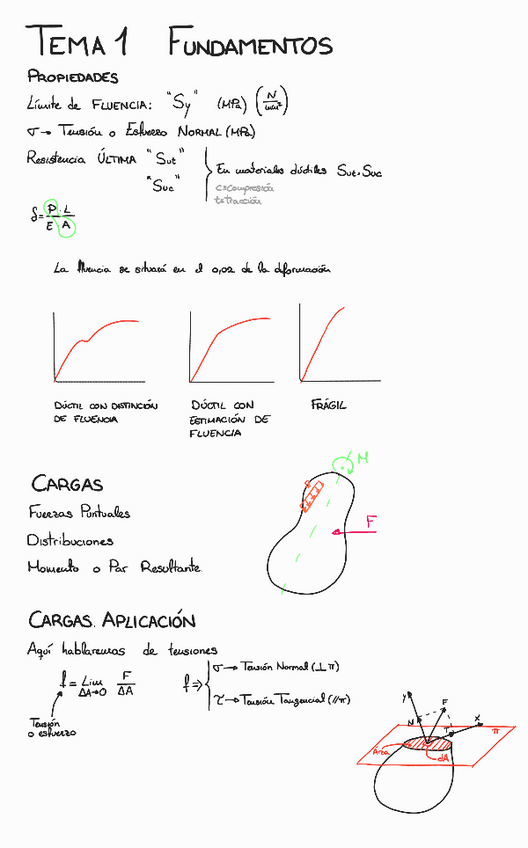 TEMA 1 FUNDAMENTOS
PROPIEDADES
Límite de FLUENCIA: "Sy" (MPa) (N/mm²)
σ→ Tensión o Esfuerzo NORMAL (MPa)
Resistencia ÚLTIMA "Sut"
"Suc"
En materiales dúctiles Sut=Suc
c=compresión
t=tracción
δ = P·L / E A
La fluencia se situará en el 0,02 de la deformación
DÚCTIL CON DISTINCIÓN
DE FLUENCIA
DÚCTIL CON
ESTIMACIÓN DE
FLUENCIA
FRÁGIL
M
CARGAS
Fuerzas Puntuales
F
Distribuciones
Momento o Par Resultante
CARGAS. APLICACIÓN
Aquí hablaremos de tensiones
f = Lim ΔA→0 F/ΔA
f ⇒
σ→ Tensión Normal (⊥π)
τ→ Tensión Tangencial (//π)
Tensión
o esfuerzo
Y
N
F
T
X
π
Area
dA